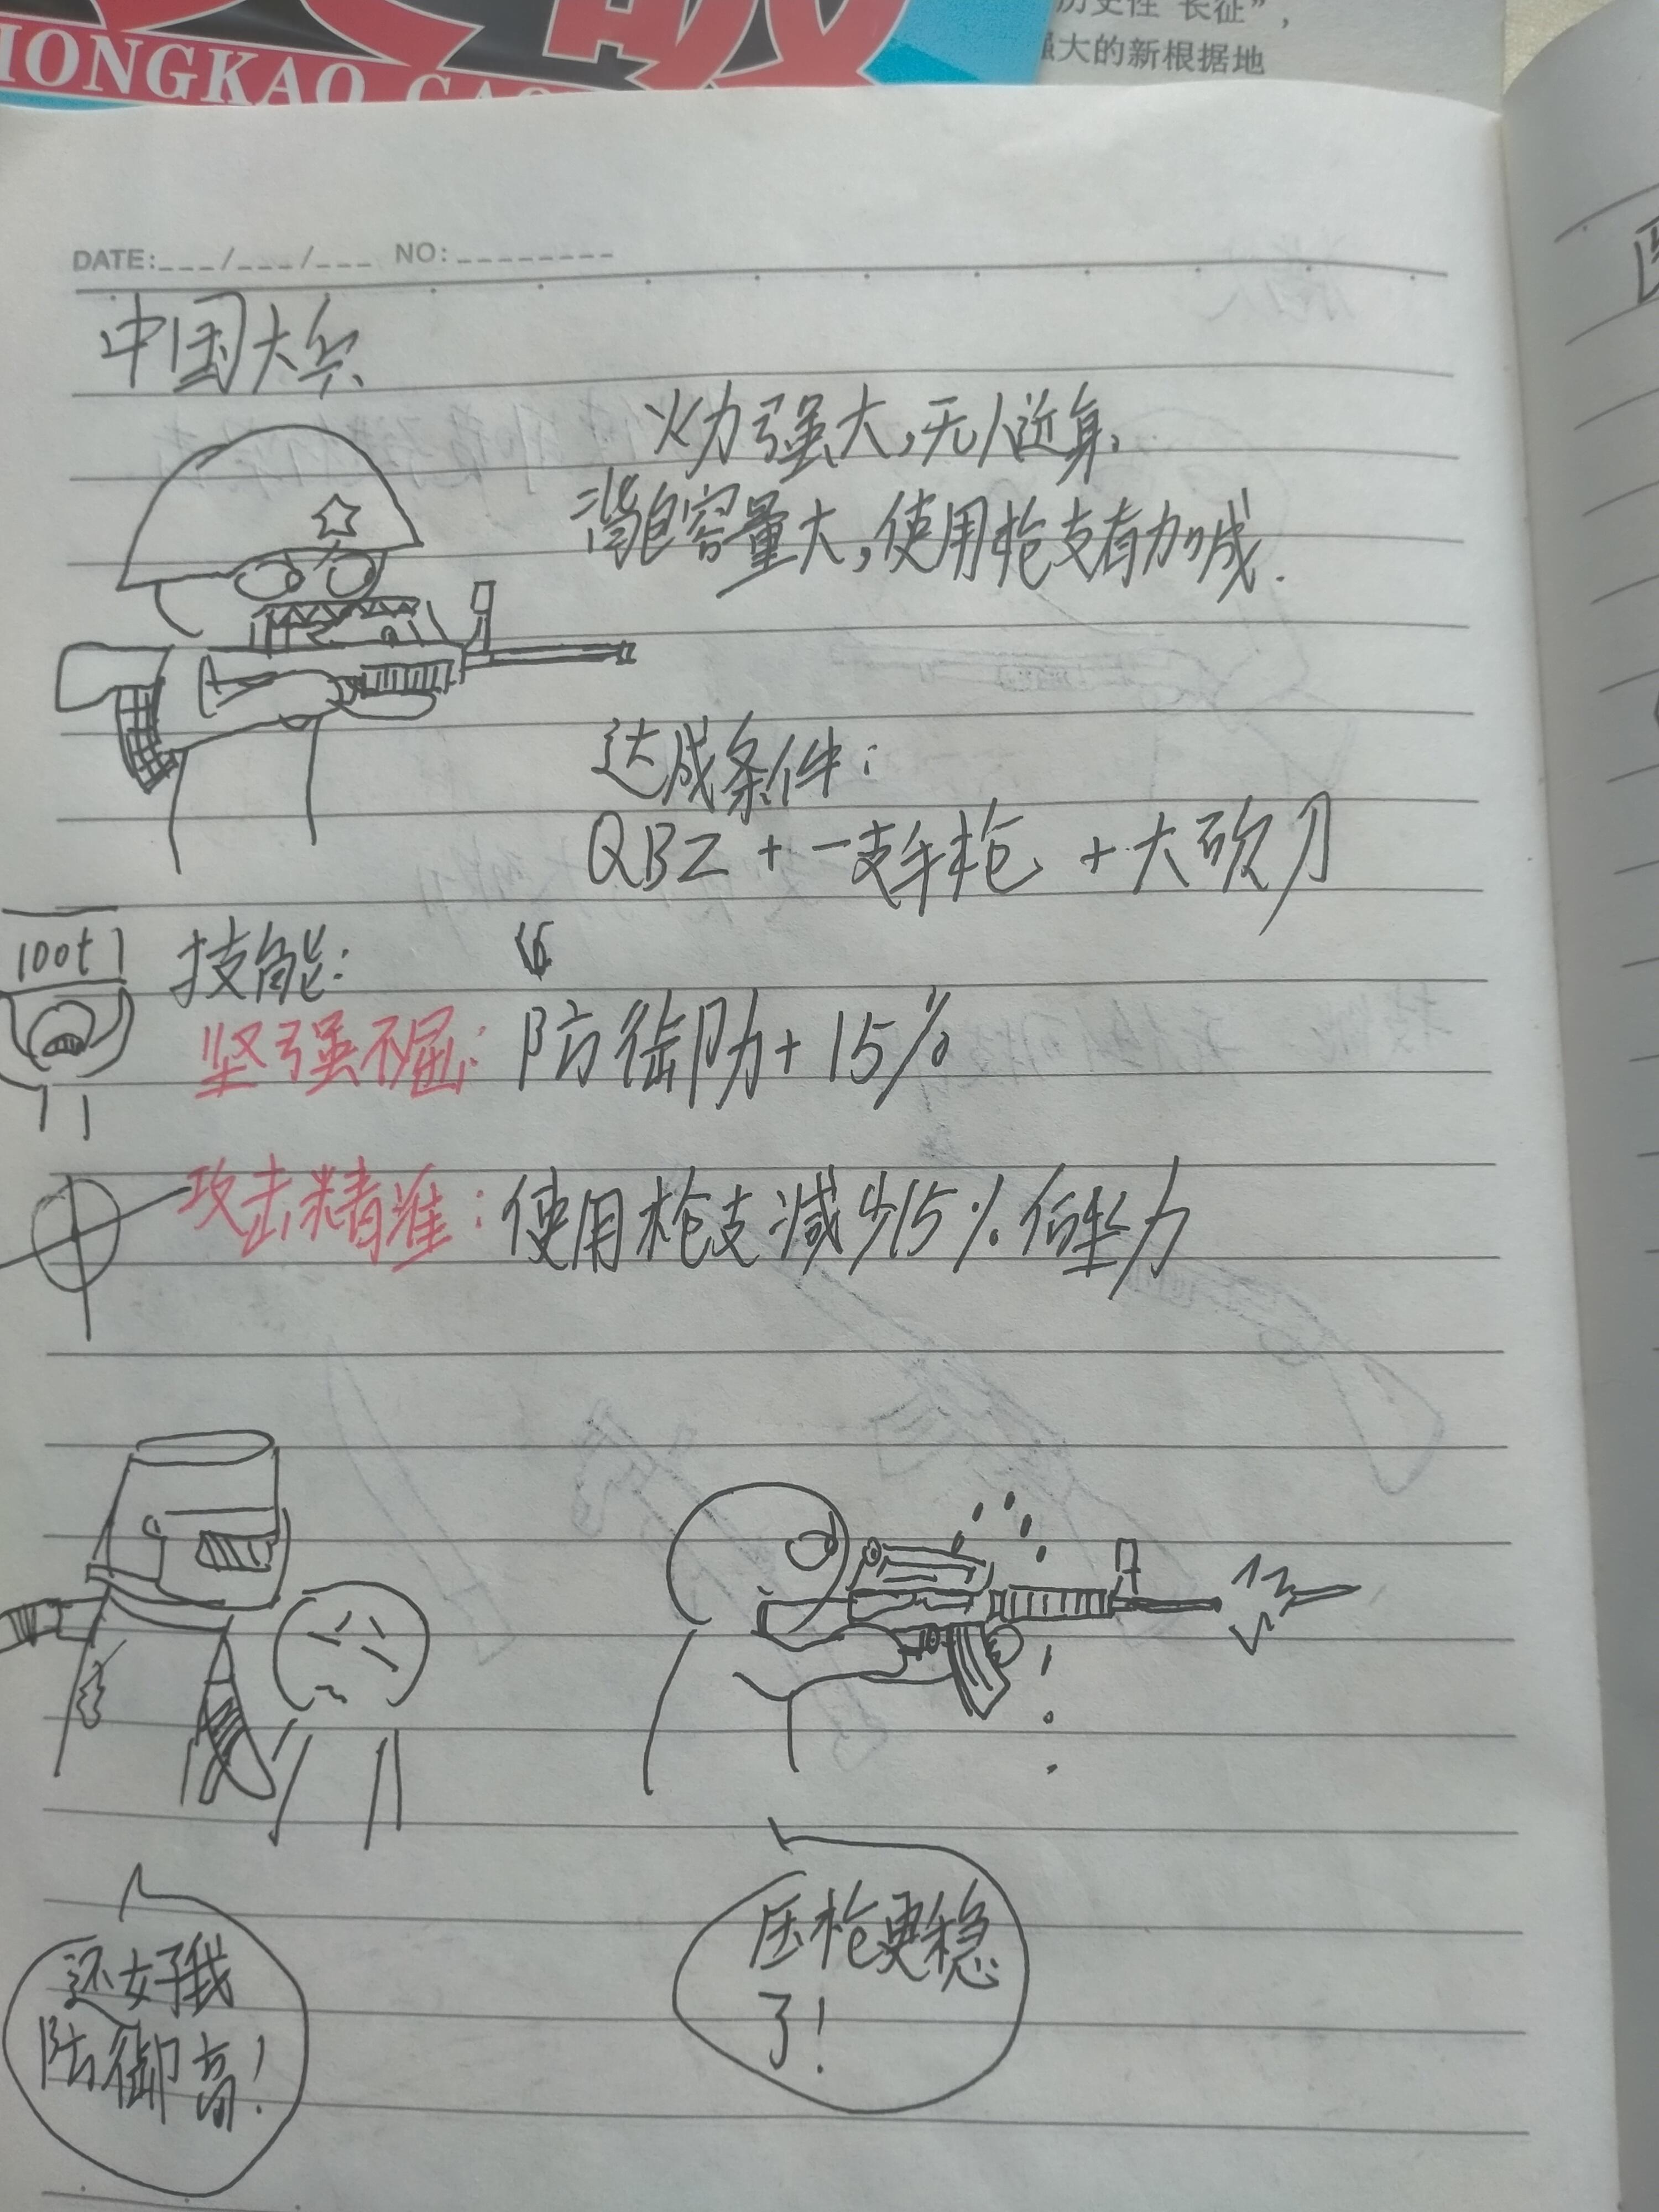 历史性“长征”，
强大的新根据地
DATE:___/___/___ NO:________
中国大兵
火力强大,无人近身.
背包容量大,使用枪支有加成.
达成条件:
QBZ + 一支手枪 + 大砍刀
100t
技能:
坚强不屈: 防御力+15%
攻击精准: 使用枪支减少15%后坐力
还好我
防御高!
压枪更稳
了!